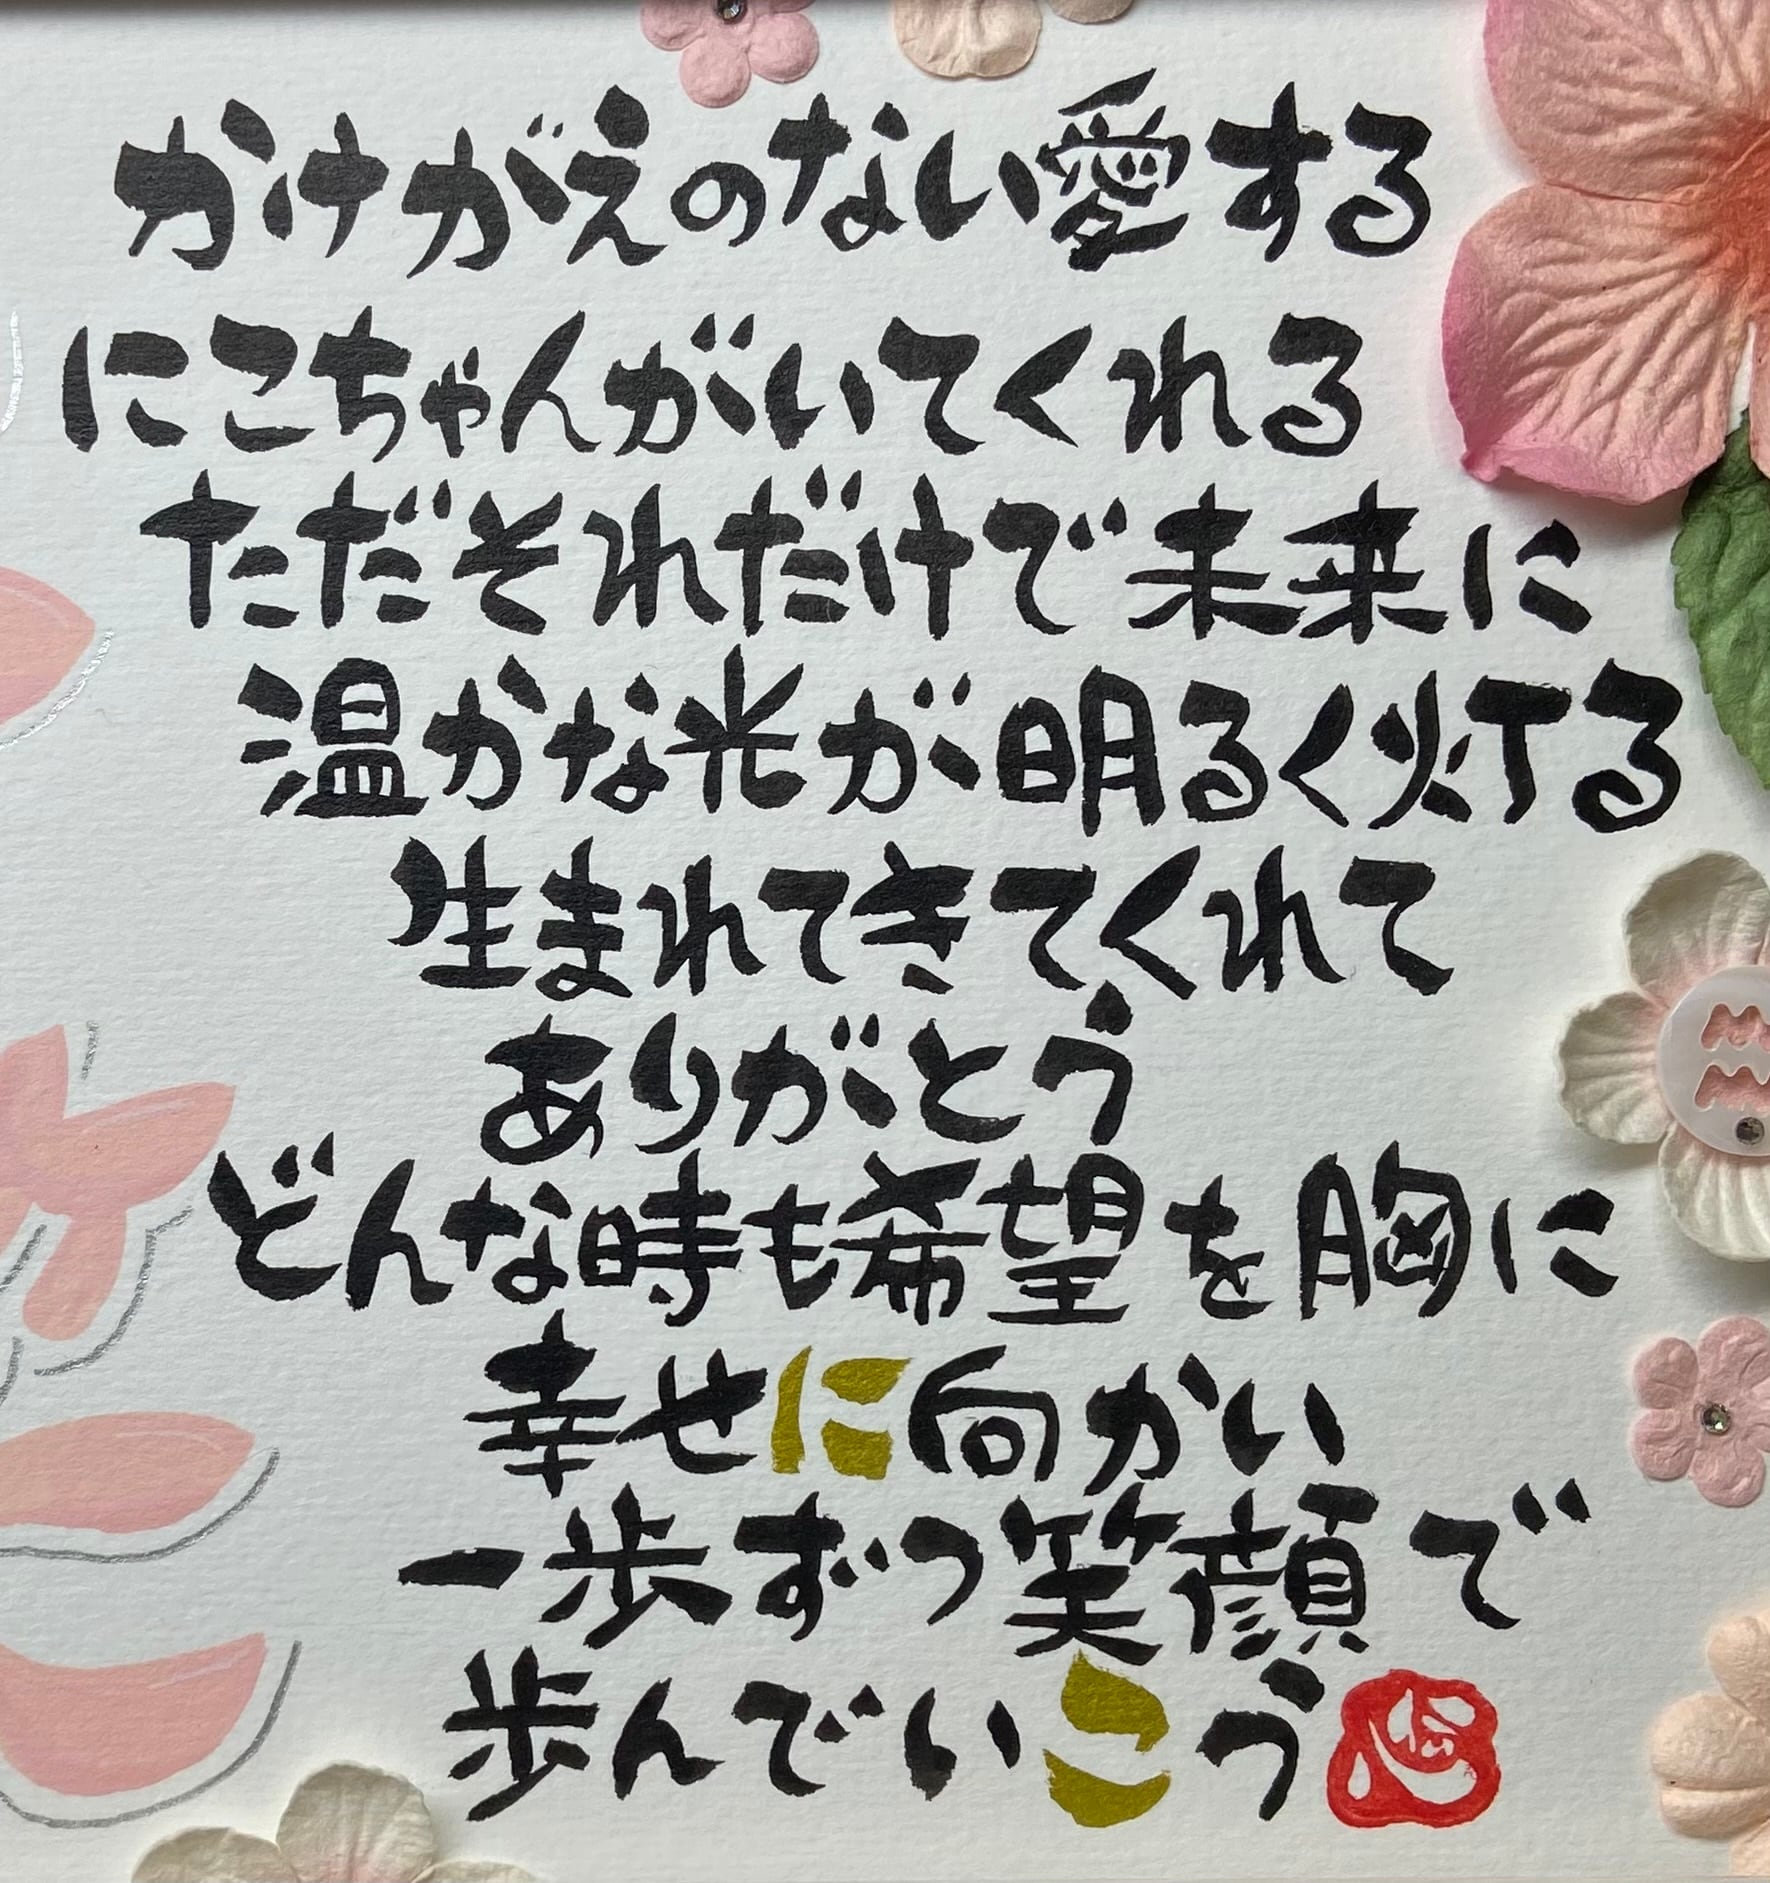 かけがえのない愛する
にこちゃんがいてくれる
ただそれだけで未来に
温かな光が明るく灯る
生まれてきてくれて
ありがとう
どんな時も希望を胸に
幸せに向かい
一歩ずつ笑顔で
歩んでいこう